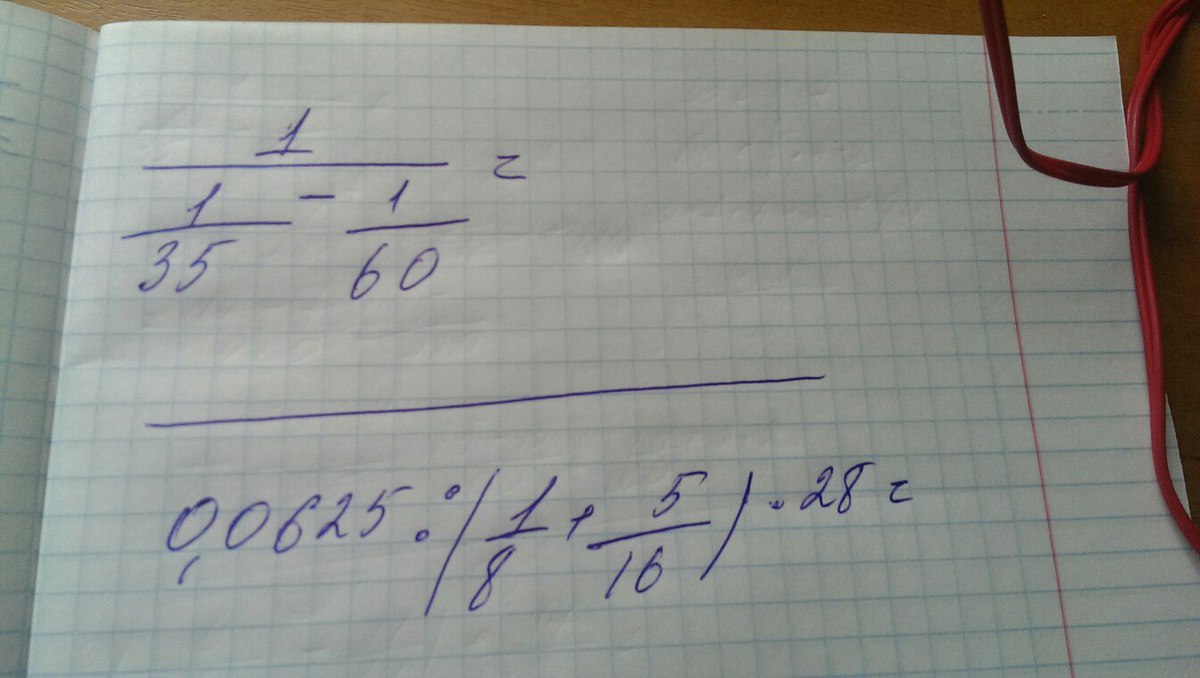 1/(1/35 - 1/60) =
0,0625 : (1/8 + 5/16) · 28 =